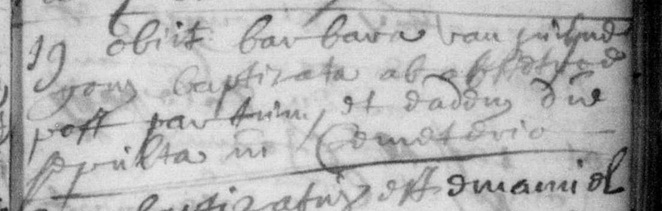 19 obiit barbara van
baptizata ab obstetrice
post partum, et eadem die
sepulta in Cemeterio
baptizatus est emanuel